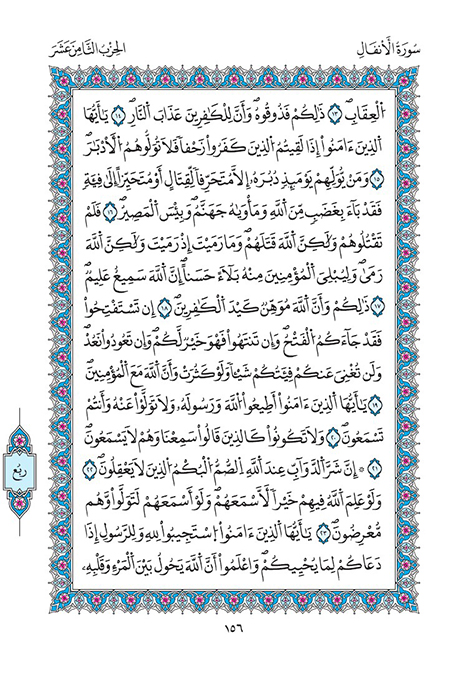 سُورَةُ الْأَنفَالِ
الحِزْبُ الثَّامِنَ عَشَرَ
اَ۬لْعِقَابِۖ ١٣ ذَٰلِكُمْ فَذُوقُوهُ وَأَنَّ لِلْكَٰفِرِينَ عَذَابَ اَ۬لنَّارِۖ ١٤ يَٰٓأَيُّهَا
اَ۬لذِينَ ءَامَنُوٓاْ إِذَا لَقِيتُمُ اُ۬لذِينَ كَفَرُواْ زَحْفاٗ فَلَا تُوَلُّوهُمُ اُ۬لْأَدْبَٰرَۖ
١٥ وَمَنْ يُّوَلِّهِمْ يَوْمَئِذٖ دُبُرَهُۥٓ إِلَّا مُتَحَرِّفاٗ لِّقِتَالٍ أَوْ مُتَحَيِّزاً إِلَىٰ فِئَةٖ
فَقَدْ بَآءَ بِغَضَبٖ مِّنَ اَ۬للَّهِ وَمَأْوَىٰهُ جَهَنَّمُۖ وَبِيسَ اَ۬لْمَصِيرُۖ ١٦ فَلَمْ
تَقْتُلُوهُمْ وَلَٰكِنَّ اَ۬للَّهَ قَتَلَهُمْۖ وَمَا رَمَيْتَ إِذْ رَمَيْتَ وَلَٰكِنَّ اَ۬للَّهَ
رَمَىٰۖ وَلِيُبْلِيَ اَ۬لْمُؤْمِنِينَ مِنْهُ بَلَآءً حَسَناًۖ إِنَّ اَ۬للَّهَ سَمِيعٌ عَلِيمٞۖ
١٧ ذَٰلِكُمْ وَأَنَّ اَ۬للَّهَ مُوَهِّنٞ كَيْدَ اَ۬لْكَٰفِرِينَۖ ١٨ إِن تَسْتَفْتِحُواْ
فَقَدْ جَآءَكُمُ اُ۬لْفَتْحُۖ وَإِن تَنتَهُواْ فَهُوَ خَيْرٞ لَّكُمْۖ وَإِن تَعُودُواْ نَعُدْۖ
وَلَن تُغْنِيَ عَنكُمْ فِئَتُكُمْ شَيْـٔاٗ وَلَوْ كَثُرَتْ وَأَنَّ اَ۬للَّهَ مَعَ اَ۬لْمُؤْمِنِينَۖ
١٩ يَٰٓأَيُّهَا اَ۬لذِينَ ءَامَنُوٓاْ أَطِيعُواْ اُ۬للَّهَ وَرَسُولَهُۥ وَلَا تَوَلَّوْاْ عَنْهُ وَأَنتُمْ
تَسْمَعُونَۖ ٢٠ وَلَا تَكُونُواْ كَالذِينَ قَالُواْ سَمِعْنَا وَهُمْ لَا يَسْمَعُونَۖ
٢١ ۞ إِنَّ شَرَّ اَ۬لدَّوَآبِّ عِندَ اَ۬للَّهِ اِ۬لصُّمُّ اُ۬لْبُكْمُ اُ۬لذِينَ لَا يَعْقِلُونَۖ ٢٢
وَلَوْ عَلِمَ اَ۬للَّهُ فِيهِمْ خَيْراٗ لَّأَسْمَعَهُمْۖ وَلَوْ أَسْمَعَهُمْ لَتَوَلَّواْ وَّهُم
مُّعْرِضُونَۖ ٢٣ يَٰٓأَيُّهَا اَ۬لذِينَ ءَامَنُواْ اُ۪سْتَجِيبُواْ لِلهِ وَلِلرَّسُولِ إِذَا
دَعَاكُمْ لِمَا يُحْيِيكُمْۖ وَاعْلَمُوٓاْ أَنَّ اَ۬للَّهَ يَحُولُ بَيْنَ اَ۬لْمَرْءِ وَقَلْبِهِۦ
ربع
١٥٦